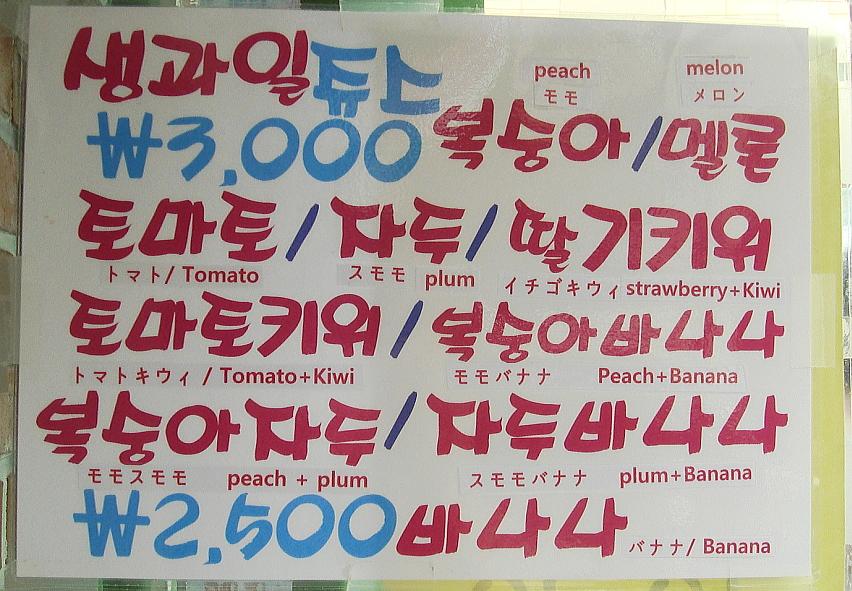 생과일듀스
peach melon
モモ メロン
₩3,000 복숭아/멜론
토마토/자두/딸기키위
トマト/ Tomato スモモ plum イチゴキウィ strawberry+Kiwi
토마토키위/복숭아바나나
トマトキウィ / Tomato+Kiwi モモバナナ Peach+Banana
복숭아자두/자두바나나
モモスモモ peach + plum スモモバナナ plum+Banana
₩2,500 바나나
バナナ/ Banana